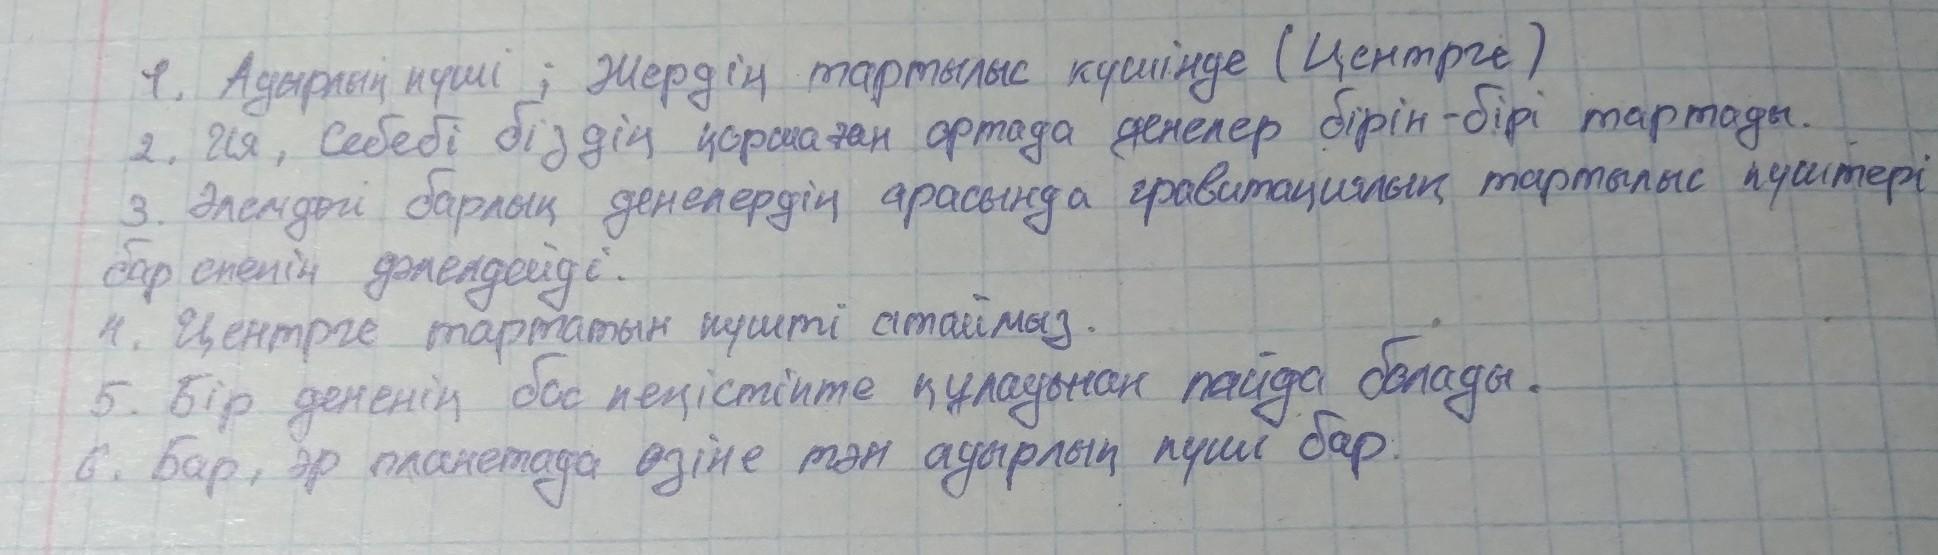 1. Ауырлық күші ; Жердің тартылыс күшінде (Центрге)
2. Ия, себебі біздің қоршаған ортада денелер бірін-бірі тартады.
3. Әлемдегі барлық денелердің арасында гравитациялық тартылыс күштері
бар екенін дәлелдейді.
4. Центрге тартатын күшті атаймыз.
5. Бір дененің бос кеңістікте құлауынан пайда болады.
6. Бар, әр планетада өзіне тән ауырлық күші бар.